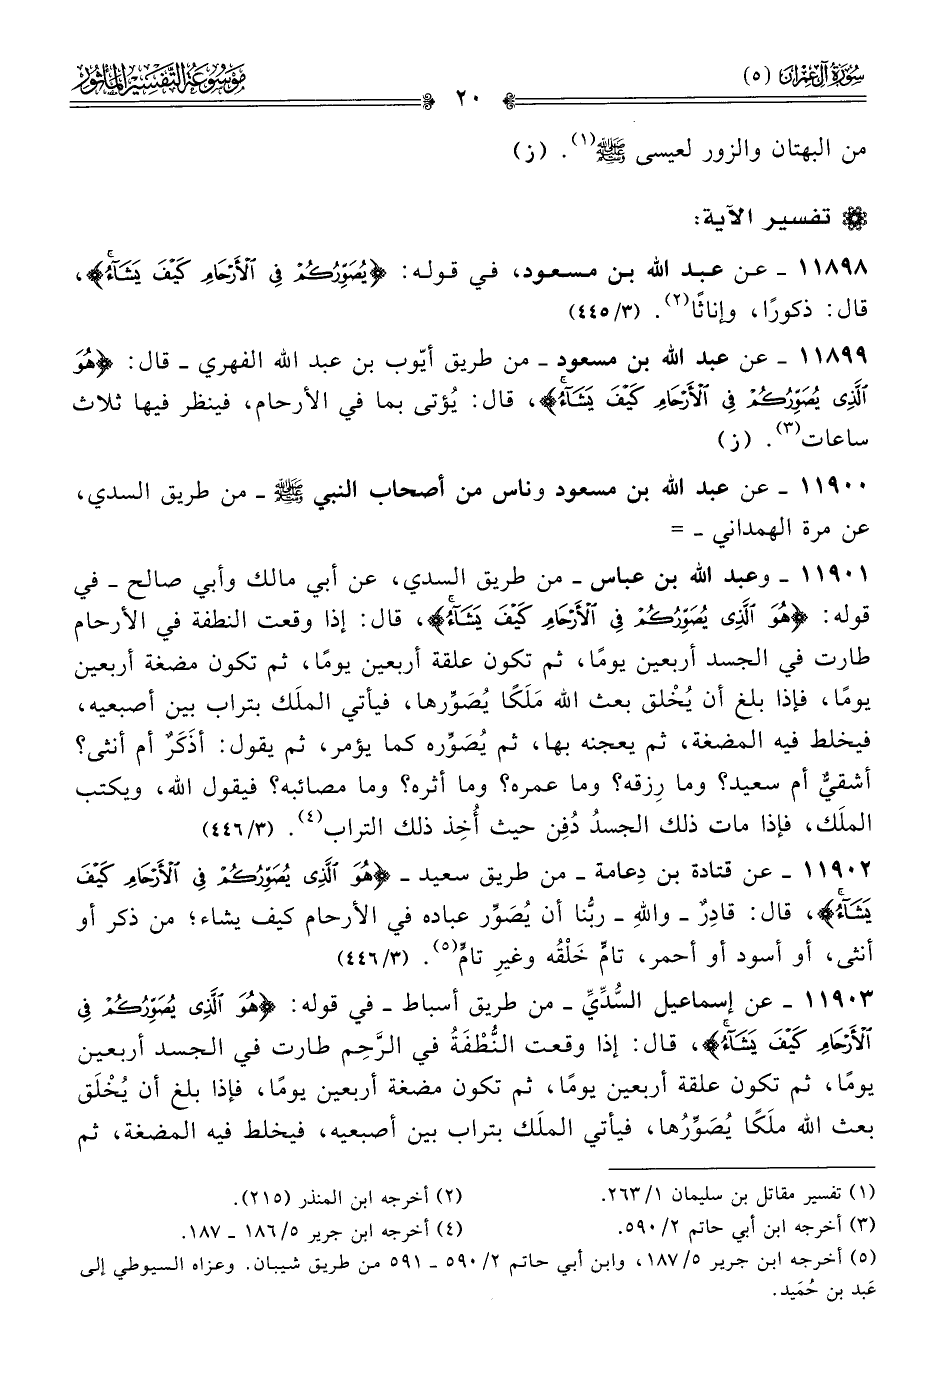 سُورَةُ آلِ عِمْرَان (٥)
٢٠
مَوْسُوعَةُ التَّفْسِيرِ المَأْثُورِ
من البهتان والزور لعيسى ﷺ(١). (ز)
تفسير الآية:
١١٨٩٨ ـ عن عبد الله بن مسعود، في قوله: ﴿يُصَوِّرُكُمْ فِى ٱلْأَرْحَامِ كَيْفَ يَشَآءُۚ﴾،
قال: ذكورًا، وإناثًا(٢). (٤٤٥/٣)
١١٨٩٩ ـ عن عبد الله بن مسعود ـ من طريق أيّوب بن عبد الله الفهري ـ قال: ﴿هُوَ
ٱلَّذِى يُصَوِّرُكُمْ فِى ٱلْأَرْحَامِ كَيْفَ يَشَآءُۚ﴾، قال: يُؤتى بما في الأرحام، فينظر فيها ثلاث
ساعات(٣). (ز)
١١٩٠٠ ـ عن عبد الله بن مسعود وناس من أصحاب النبي ﷺ ـ من طريق السدي،
عن مرة الهمداني ـ =
١١٩٠١ ـ وعبد الله بن عباس ـ من طريق السدي، عن أبي مالك وأبي صالح ـ في
قوله: ﴿هُوَ ٱلَّذِى يُصَوِّرُكُمْ فِى ٱلْأَرْحَامِ كَيْفَ يَشَآءُۚ﴾، قال: إذا وقعت النطفة في الأرحام
طارت في الجسد أربعين يومًا، ثم تكون علقة أربعين يومًا، ثم تكون مضغة أربعين
يومًا، فإذا بلغ أن يُخْلق بعث الله مَلَكًا يُصَوِّرها، فيأتي الملَك بتراب بين أصبعيه،
فيخلط فيه المضغة، ثم يعجنه بها، ثم يُصَوِّره كما يؤمر، ثم يقول: أذَكَرٌ أم أنثى؟
أشقيٌّ أم سعيد؟ وما رِزقه؟ وما عمره؟ وما أثره؟ وما مصائبه؟ فيقول الله، ويكتب
الملَك، فإذا مات ذلك الجسدُ دُفِن حيث أُخِذ ذلك التراب(٤). (٤٤٦/٣)
١١٩٠٢ ـ عن قتادة بن دِعامة ـ من طريق سعيد ـ ﴿هُوَ ٱلَّذِى يُصَوِّرُكُمْ فِى ٱلْأَرْحَامِ كَيْفَ
يَشَآءُۚ﴾، قال: قادِرٌ ـ واللهِ ـ ربُّنا أن يُصَوِّر عباده في الأرحام كيف يشاء؛ من ذكر أو
أنثى، أو أسود أو أحمر، تامٍّ خَلْقُه وغيرِ تامٍّ(٥). (٤٤٦/٣)
١١٩٠٣ ـ عن إسماعيل السُّدِّيِّ ـ من طريق أسباط ـ في قوله: ﴿هُوَ ٱلَّذِى يُصَوِّرُكُمْ فِى
ٱلْأَرْحَامِ كَيْفَ يَشَآءُۚ﴾، قال: إذا وقعت النُّطْفَةُ في الرَّحِم طارت في الجسد أربعين
يومًا، ثم تكون علقة أربعين يومًا، ثم تكون مضغة أربعين يومًا، فإذا بلغ أن يُخْلَق
بعث الله ملَكًا يُصَوِّرُها، فيأتي الملَك بتراب بين أصبعيه، فيخلط فيه المضغة، ثم
(١) تفسير مقاتل بن سليمان ٢٦٣/١.
(٢) أخرجه ابن المنذر (٢١٥).
(٣) أخرجه ابن أبي حاتم ٥٩٠/٢.
(٤) أخرجه ابن جرير ١٨٦/٥ ـ ١٨٧.
(٥) أخرجه ابن جرير ١٨٧/٥، وابن أبي حاتم ٥٩٠/٢ ـ ٥٩١ من طريق شيبان. وعزاه السيوطي إلى
عَبد بن حُمَيد.